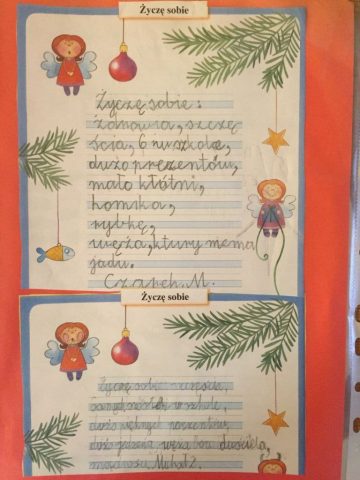 Życzę sobie
Życzę sobie:
Zdrowia, szczę
ścia, 6 w szkole,
dużo prezentów,
mało kłótni,
homika,
rybkę,
węża, ktury mema
jadu.
Czarek. M.
Życzę sobie
Życzę sobie szczęścia,
samych szóstek w szkole,
dużo prezentów,
dużo węża boa dusiciela,